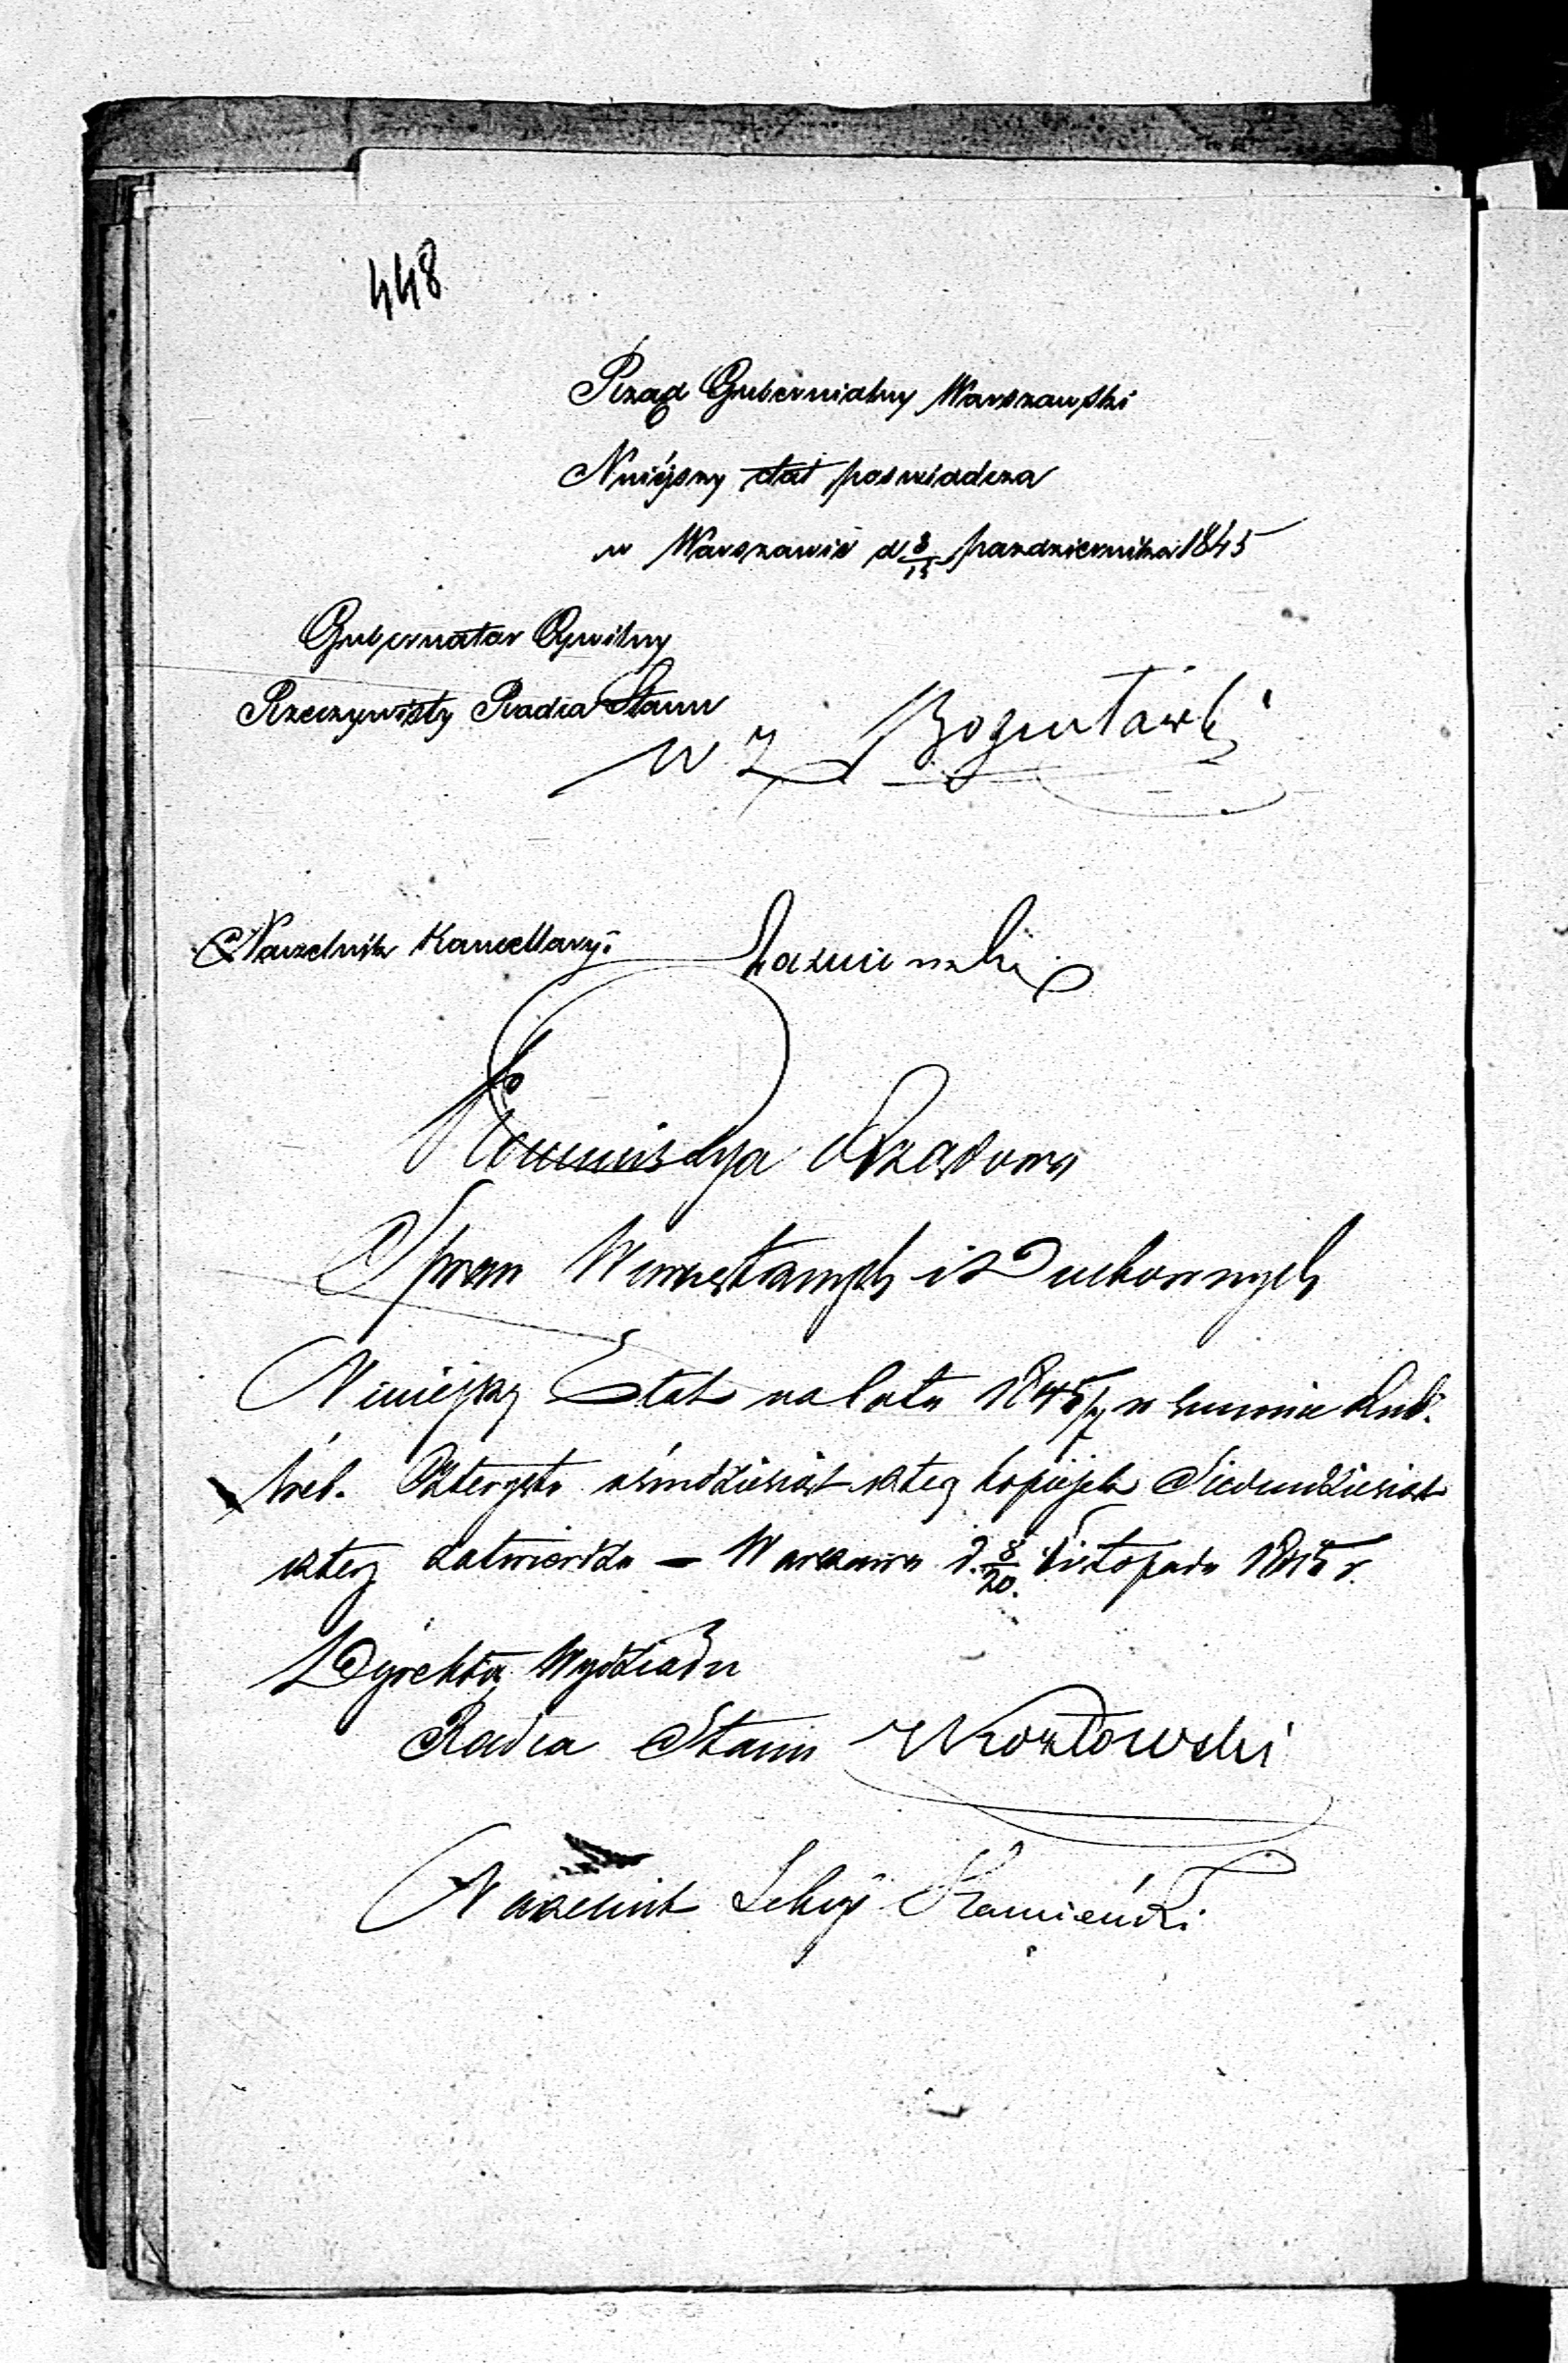 448
Rząd Gubernialny Warszawski
Niniejszy etat poswiadcza
w Warszawie d 3/15 pazdziernika 1845
Gubernator Cywilny
Rzeczywisty Radca Stanu
w z Bogusławski
Naczelnik Kancellaryi
Kommissya Rządowa
Spraw Wewnętrznych i Duchownych
Niniejszy Etat na lata 1845/7 w summie Rub.
sreb. Czterysta ośmdziesiąt cztery kopiejek Siedmdziesiąt
cztery zatwierdza — Warszawa d. 8/20. Listopada 1845 r.
Dyrektor Wydziału
Radca Stanu Kozłowski
Naczelnik Sekcyi Kamieński